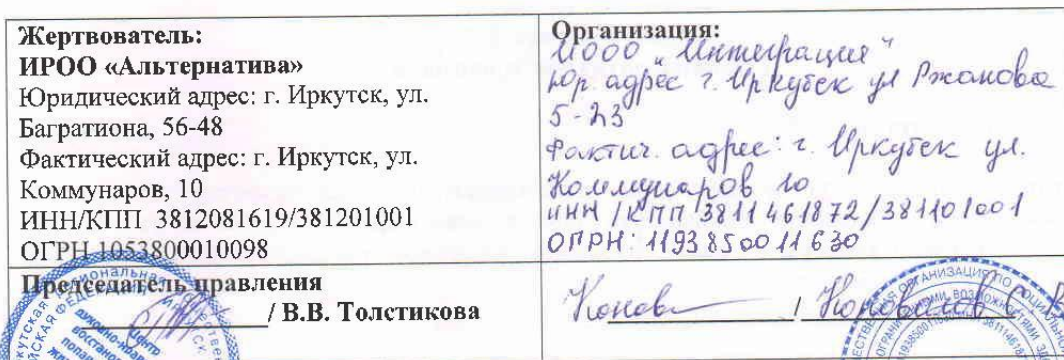 Жертвователь:
ИРОО «Альтернатива»
Юридический адрес: г. Иркутск, ул.
Багратиона, 56-48
Фактический адрес: г. Иркутск, ул.
Коммунаров, 10
ИНН/КПП 3812081619/381201001
ОГРН 1053800010098
Организация:
ИООО "Интеграция"
Юр. адрес г. Иркутск ул Ржанова
5-23
Фактич. адрес: г. Иркутск ул.
Коммунаров 10
ИНН / КПП 3811461872/381101001
ОГРН: 1193850011630
Председатель правления
/ В.В. Толстикова
/ Коновалов С